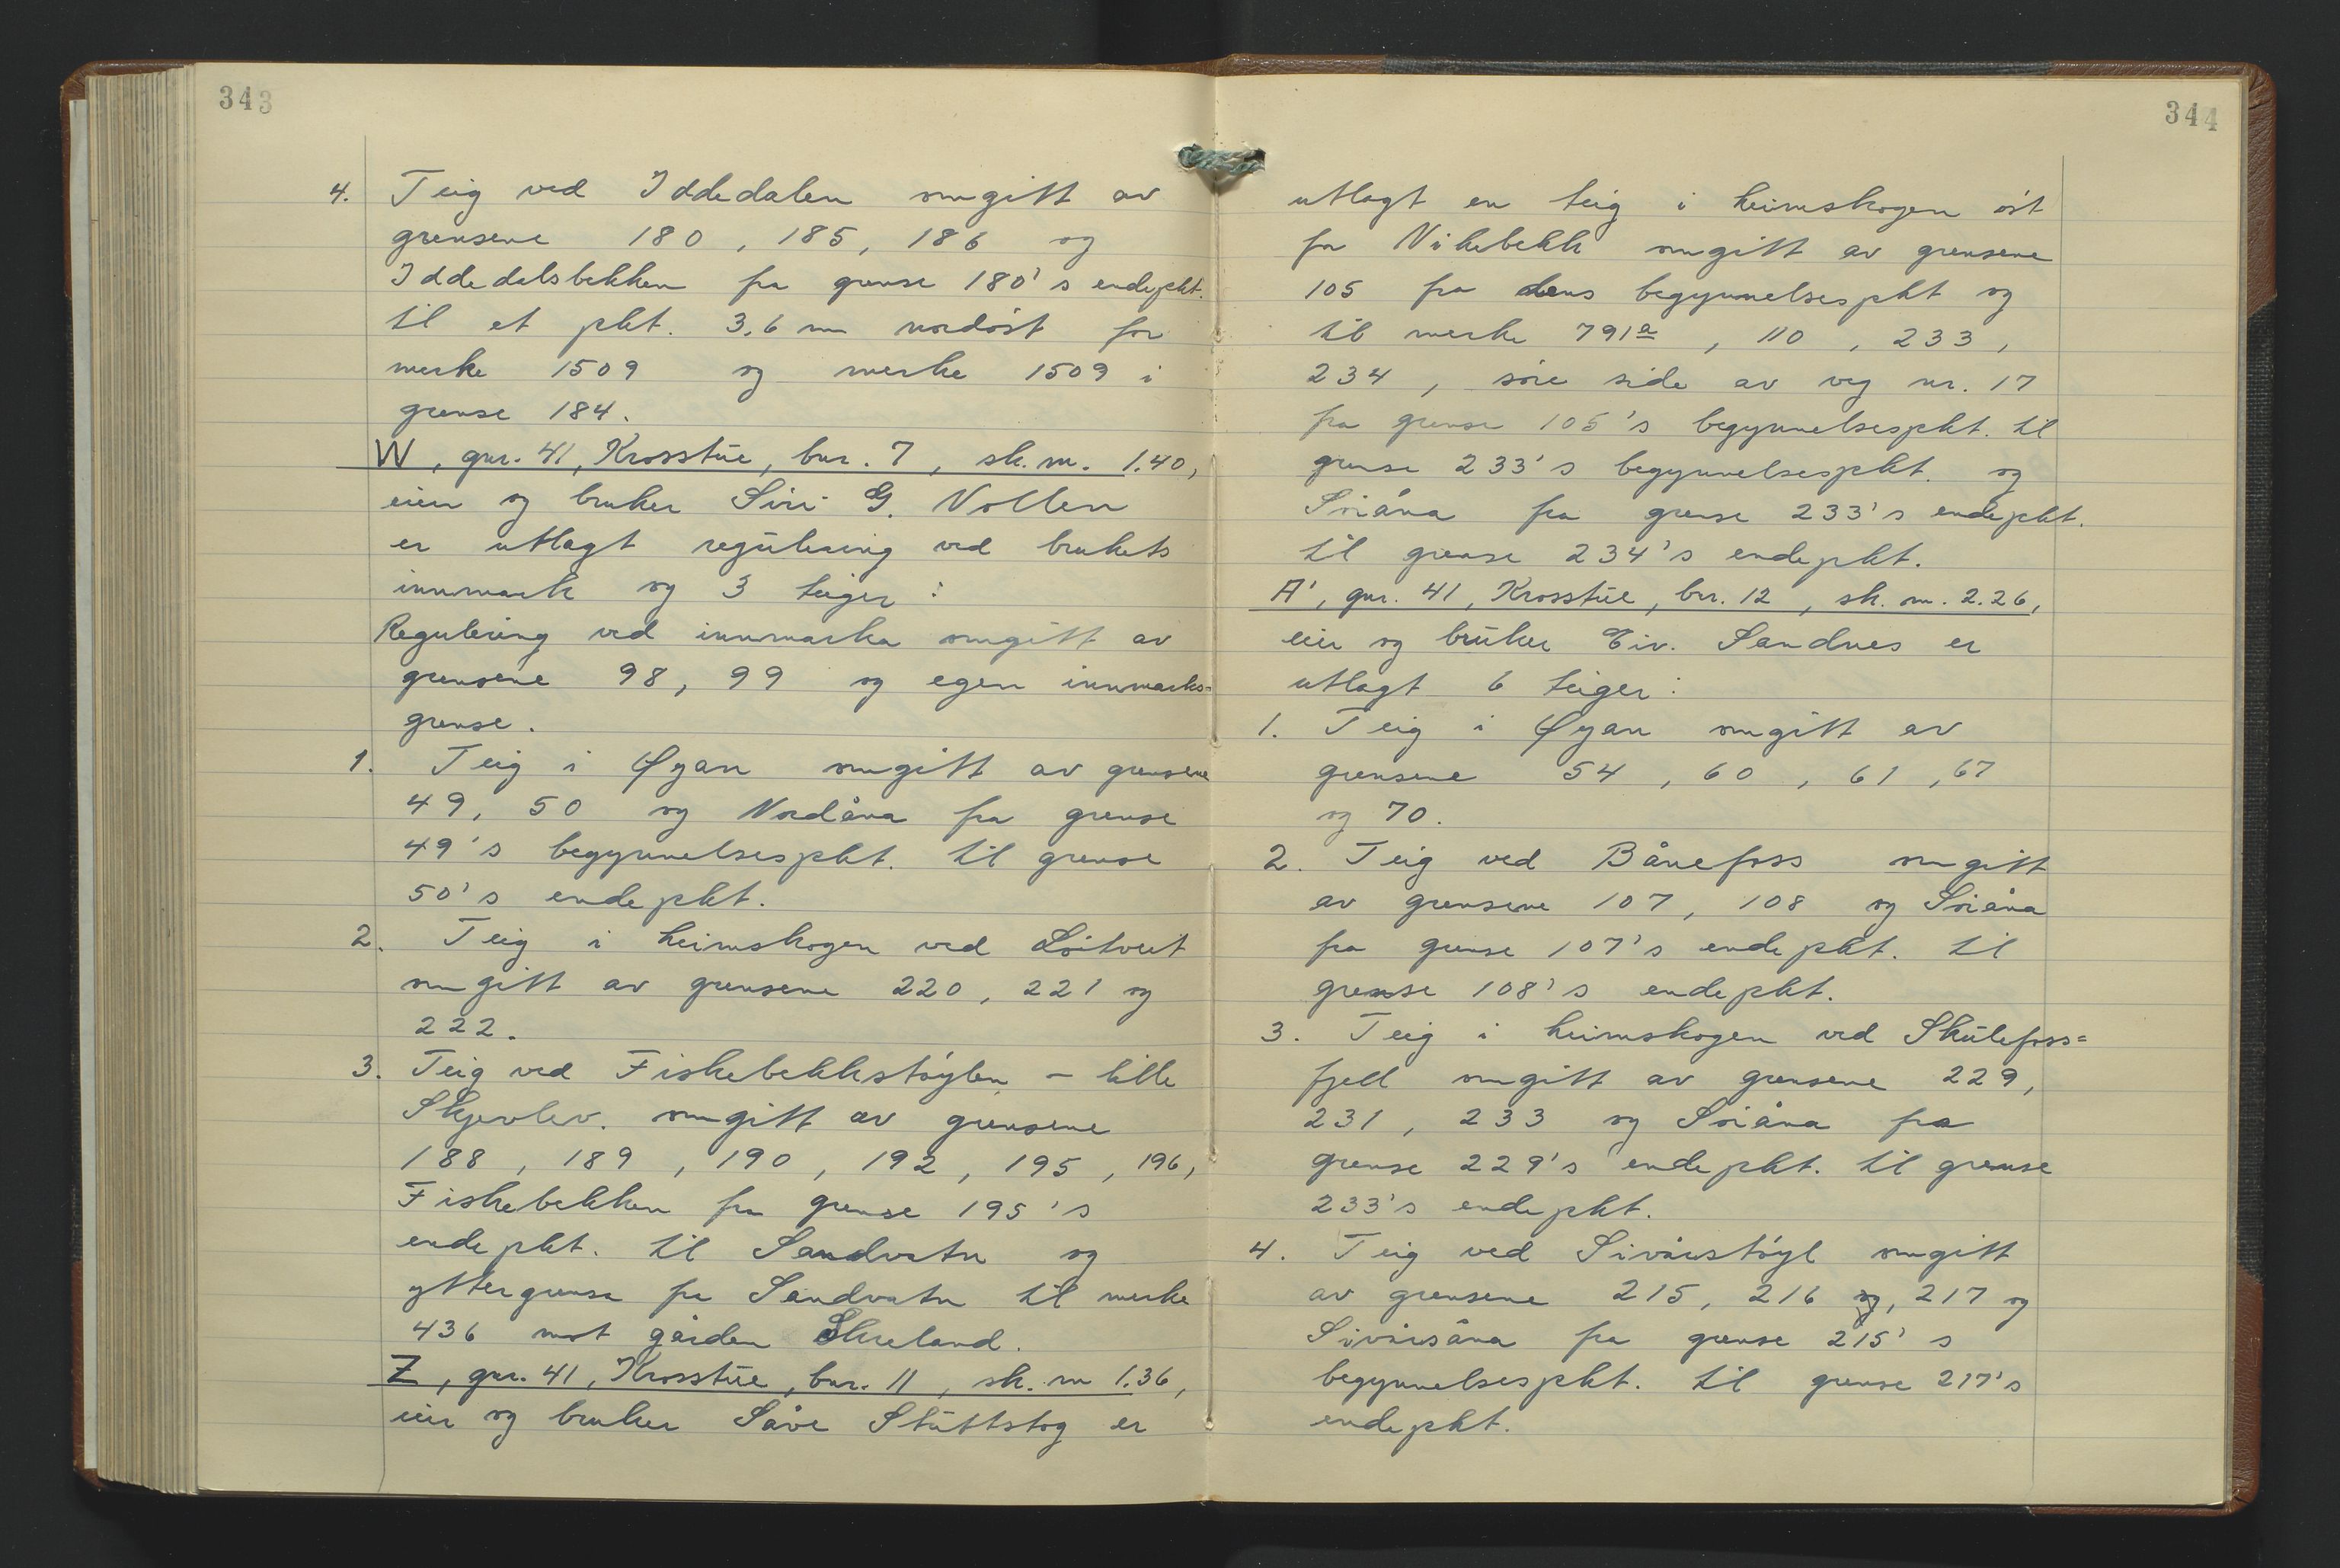 343
4. Teig ved Iddedalen omgitt av
grensene 180, 185, 186 og
Iddedalsbekken fra grense 180's endepkt.
til et pkt. 3,6 m nordöst for
merke 1509 og merke 1509 i
grense 184.
W, gnr. 41, Krosstüe, bnr. 7, sk. m. 1.40,
eier og bruker Siri G. Nollen
er utlagt regülering ved brukets
innmark og 3 teiger:
Regulering ved innmarka omgitt av
grensene 98, 99 og egen innmarks-
grense.
1. Teig i Øyan omgitt av grensene
49, 50 og Nordåna fra grense
49's begynnelsespkt. til grense
50's endepkt.
2. Teig i heimskogen ved Löitveit
omgitt av grensene 220, 221 og
222.
3. Teig ved Fiskebekkstöylen – lille
Skjevlev. omgitt av grensene
188, 189, 190, 192, 195, 196,
Fiskebekken fra grense 195's
endepkt. til Sandvatn og
yttergrense fra Sandvatn til merke
436 mot gården Skreland.
Z, gnr. 41, Krosstüe, bnr. 11, sk. m 1.36,
eier og bruker Såve Stüttstog er
344
utlagt en teig i heimskogen öst
for Nikebekk omgitt av grensene
105 fra dens begynnelsespkt og
til merke 791a, 110, 233,
234, söre side av veg nr. 17
fra grense 105's begynnelsespkt. til
grense 233's begynnelsespkt. og
Söråna fra grense 233's endepkt.
til grense 234's endepkt.
A', gnr. 41, Krosstüe, bnr. 12, sk. m. 2.26,
eier og brüker Eiv. Sandnes er
utlagt 6 teiger:
1. Teig i Øyan omgitt av
grensene 54, 60, 61, 67
og 70.
2. Teig ved Bånefoss omgitt
av grensene 107, 108 og Söråna
fra grense 107's endepkt. til
grense 108's endepkt.
3. Teig i heimskogen ved Skülefoss=
fjell omgitt av grensene 229,
231, 233 og Söråna fra
grense 229's endepkt. til grense
233's endepkt.
4. Teig ved Sivärstöyl omgitt
av grensene 215, 216 og, 217 og
Sivärsåna fra grense 215's
begynnelsespkt. til grense 217's
endepkt.